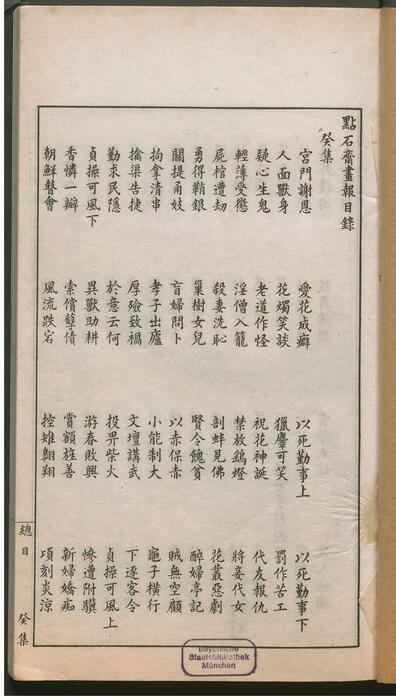 點石齋畫報目錄
癸集
宮門謝恩 愛花成癖 以死勤事上 以死勤事下
人面獸身 花燭笑談 獵麞可笑 罰作苦工
疑心生鬼 老道作怪 祝花神誕 代友報仇
輕薄受懲 淫僧入籠 禁放鷂燈 將妾代女
屍棺遭劫 殺妻洗恥 剖蚌見佛 花叢惡劇
勇得鞘銀 巢樹女兒 賢令餽貧 醉婦亭記
關提甬妓 盲婦問卜 以赤保赤 賊無空顧
拘拿清串 孝子出廬 小能制大 龜子橫行
擒渠告捷 厚殮致禍 文壇講武 下逐客令
勤求民隱 於意云何 投畀柴火 貞操可風上
貞操可風下 異獸助耕 游春敗興 慘遭附驥
香憐一瓣 索償孽債 賞額旌善 新婦嬌痴
朝鮮瞽會 風流跌宕 控雉翱翔 頃刻炎涼
總目 癸集
Bayerische
Staatsbibliothek
München